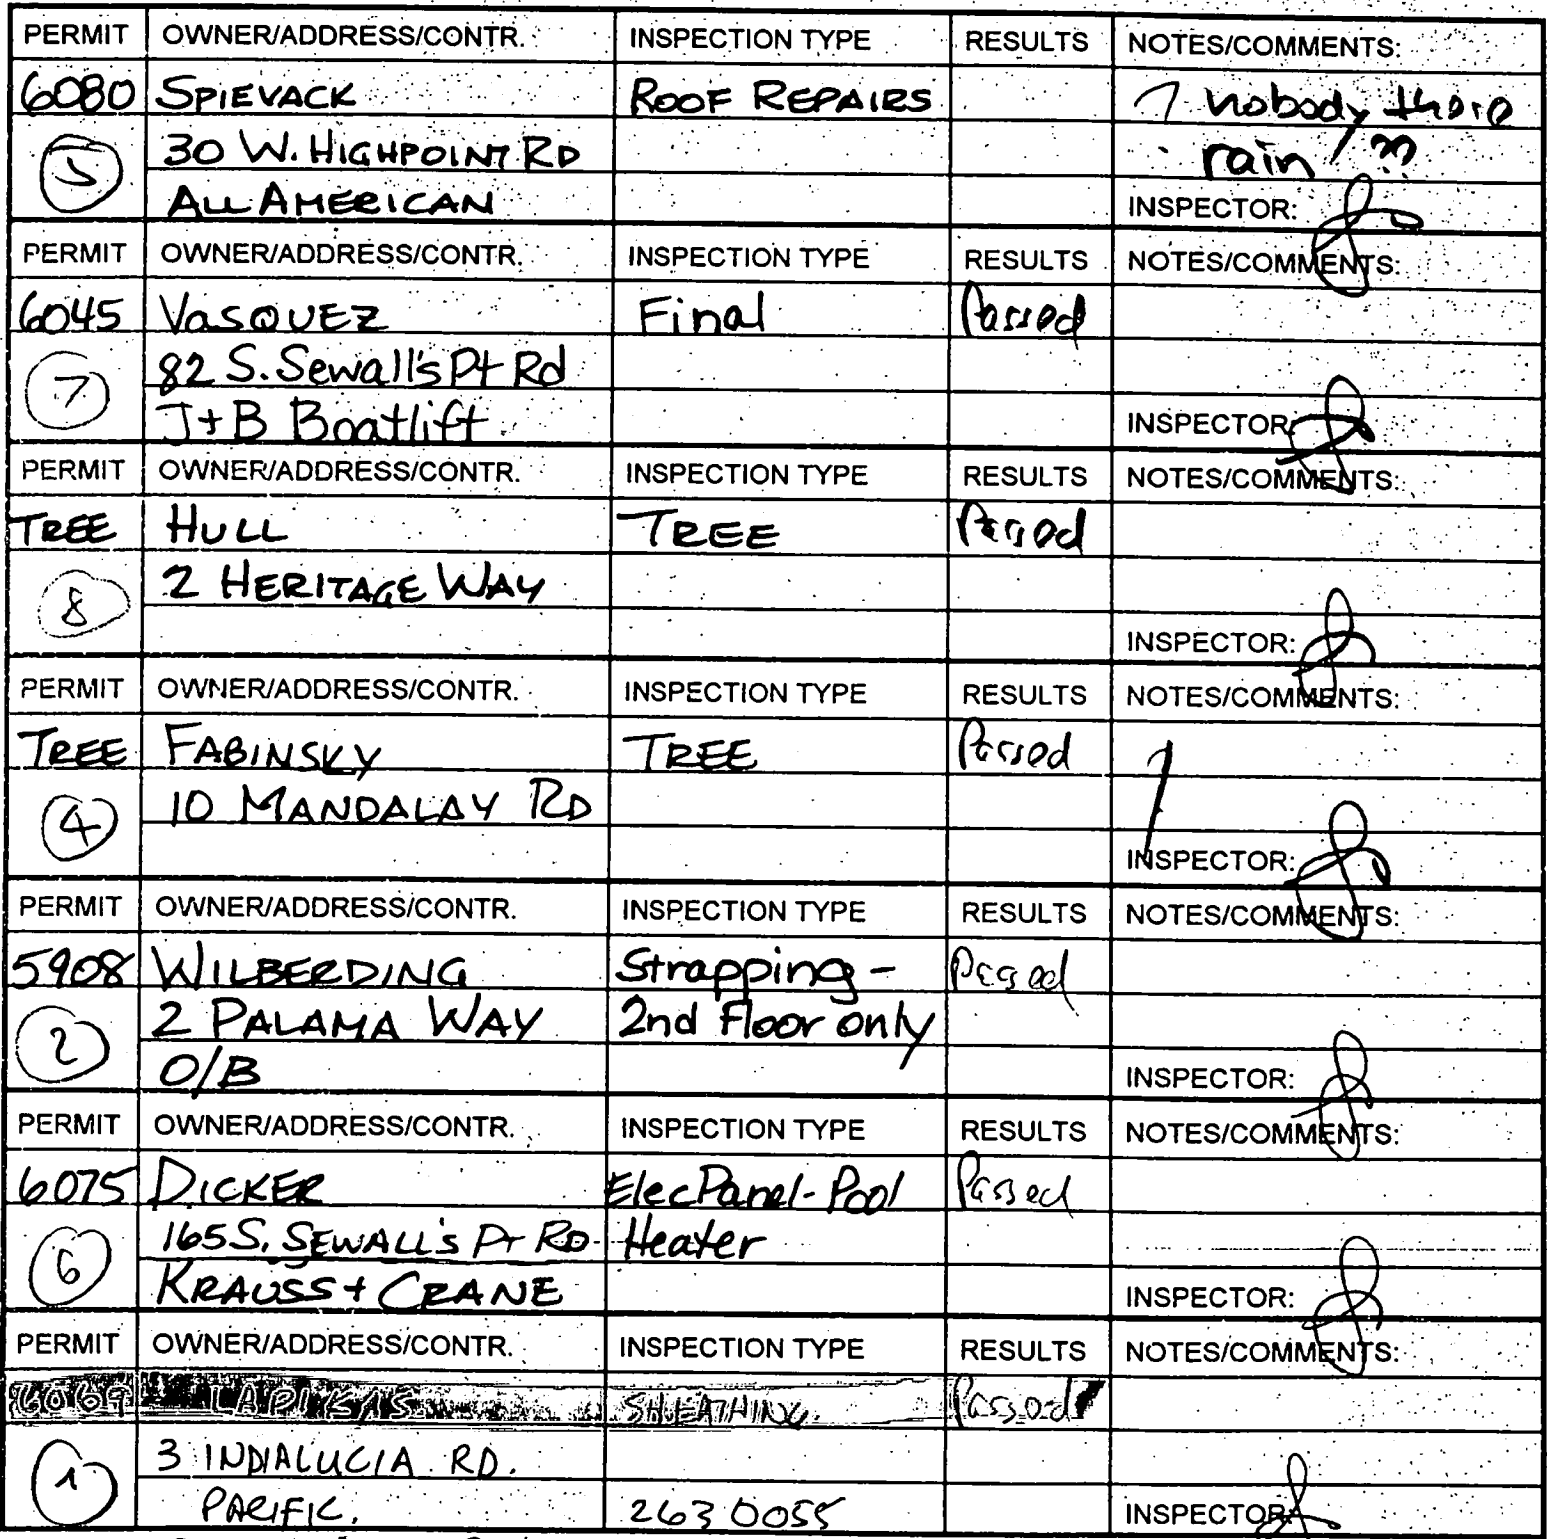 PERMIT OWNER/ADDRESS/CONTR. INSPECTION TYPE RESULTS NOTES/COMMENTS:
6080 SPIEVACK ROOF REPAIRS nobody there
5 30 W. HIGHPOINT RD rain ! ??
ALL AMERICAN INSPECTOR:
PERMIT OWNER/ADDRESS/CONTR. INSPECTION TYPE RESULTS NOTES/COMMENTS:
6045 VASQUEZ Final Passed
7 82 S. Sewall's Pt Rd
J+B Boatlift INSPECTOR:
PERMIT OWNER/ADDRESS/CONTR. INSPECTION TYPE RESULTS NOTES/COMMENTS:
TREE HULL TREE Passed
8 2 HERITAGE WAY
INSPECTOR:
PERMIT OWNER/ADDRESS/CONTR. INSPECTION TYPE RESULTS NOTES/COMMENTS:
TREE FABINSKY TREE Passed
4 10 MANDALAY RD
INSPECTOR:
PERMIT OWNER/ADDRESS/CONTR. INSPECTION TYPE RESULTS NOTES/COMMENTS:
5908 WILBERDING Strapping - Passed
2 2 PALAMA WAY 2nd Floor only
O/B INSPECTOR:
PERMIT OWNER/ADDRESS/CONTR. INSPECTION TYPE RESULTS NOTES/COMMENTS:
6075 DICKER Elec Panel - Pool Passed
6 165 S. SEWALL'S PT RD Heater
KRAUSS + CRANE INSPECTOR:
PERMIT OWNER/ADDRESS/CONTR. INSPECTION TYPE RESULTS NOTES/COMMENTS:
6069 SHEATHING. Passed
1 3 INDIALUCIA RD.
PACIFIC. 263 0055 INSPECTOR: